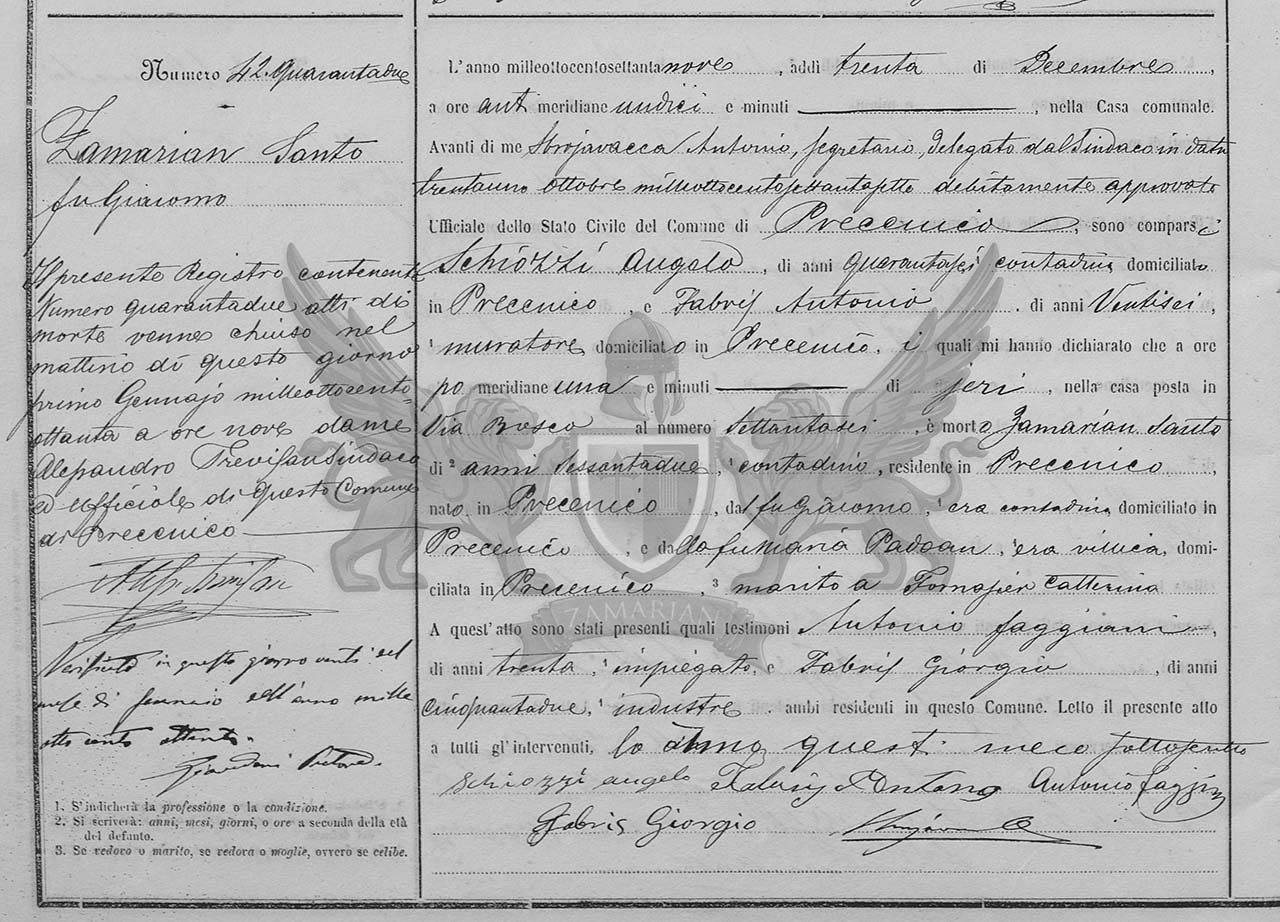 Numero 42. Quarantadue
Zamarian Santo
fu Giacomo
Il presente Registro contenente
Numero quarantadue atti di
morte venne chiuso nel
mattino di questo giorno
primo Gennajo milleottocento-
ottanta a ore nove da me
Alessandro Trevisan Sindaco
ed Uffiziale di questo Comune
di Precenico
Verificato in questo giorno venti del
mese di Gennaio dell'anno mille
otto cento ottanta.
Pretore
1. S'indicherà la professione o la condizione.
2. Si scriverà: anni, mesi, giorni, o ore a seconda della età
del defunto.
3. Se vedovo o marito, se vedova o moglie, ovvero se celibe.
L'anno milleottocentosettantanove, addì trenta di Decembre,
a ore anti meridiane undici e minuti, nella Casa comunale.
Avanti di me Sbrojavacca Antonio, Segretario, Delegato dal Sindaco in data
trentauno Ottobre milleottocentosettantasette debitamente approvato
Ufficiale dello Stato Civile del Comune di Precenico, sono comparsi
Schiozzi Angelo, di anni quarantasei contadino domiciliato
in Precenico, e Fabris Antonio. di anni Ventisei,
1 muratore domiciliato in Precenico, i quali mi hanno dichiarato che a ore
po meridiane una e minuti di jeri, nella casa posta in
Via Bosco al numero Settantasei, è morto Zamarian Santo
di 2 anni Sessantadue, 1 contadino, residente in Precenico,
nato in Precenico, dal fu Giacomo, 1 era contadino domiciliato in
Precenico, e dalla fu Maria Padoan, 1 era villica, domi-
ciliata in Precenico, 3 marito a Fornajier Catterina
A quest'atto sono stati presenti quali testimoni Antonio Faggiani,
di anni trenta, 1 impiegato, e Fabris Giorgio, di anni
Cinquantadue, 1 industre. ambi residenti in questo Comune. Letto il presente atto
a tutti gl'intervenuti, lo questi meco sottoscritto
Schiozzi angelo Fabris Antonio Antonio Faggiani
Fabris Giorgio
ZAMARIAN